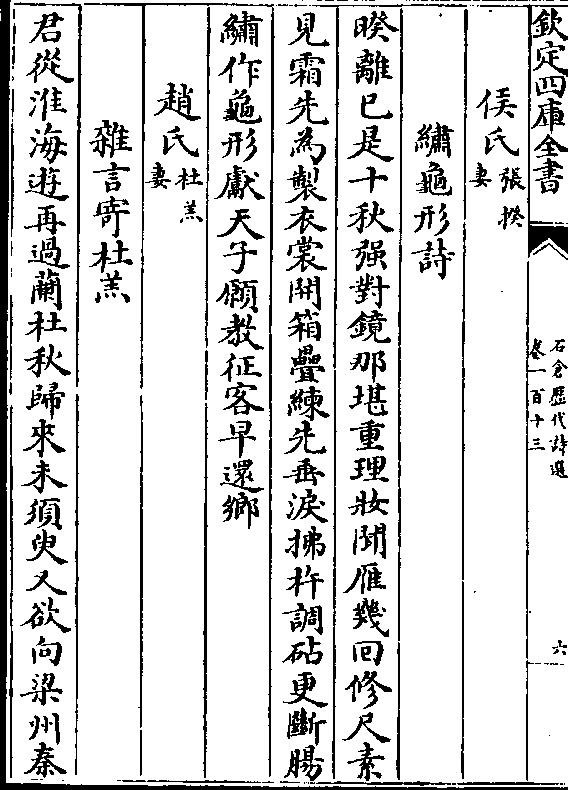 欽定四庫全書
石倉歷代詩選
卷一百十三
六
侯氏張揆妻
繡龜形詩
暌離已是十秋强對鏡那堪重理妝聞雁幾回修尺素
見霜先為製衣裳開箱疊練先垂淚拂杵調砧更斷腸
繡作龜形獻天子願教征客早還鄉
趙氏杜羔妻
雜言寄杜羔
君從淮海遊再過蘭杜秋歸來未須臾又欲向梁州秦